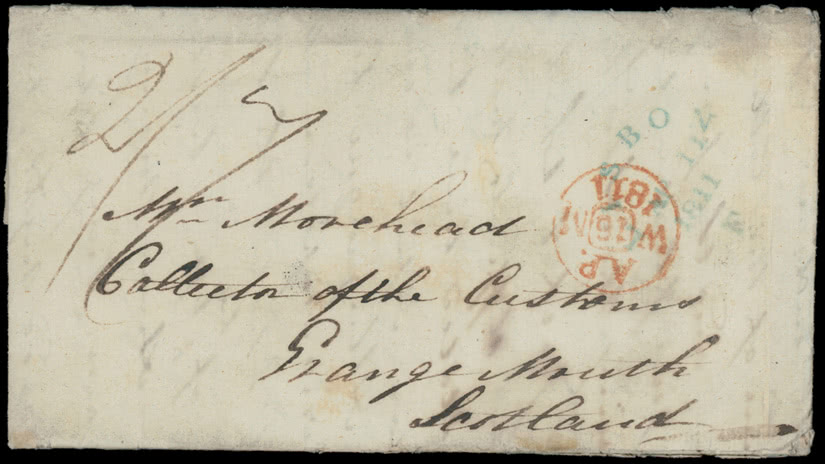 2/7
Mrs Morehead
Collector of the Customs
Grange Mouth
Scotland
B.O
1811
A.P.
16
1811